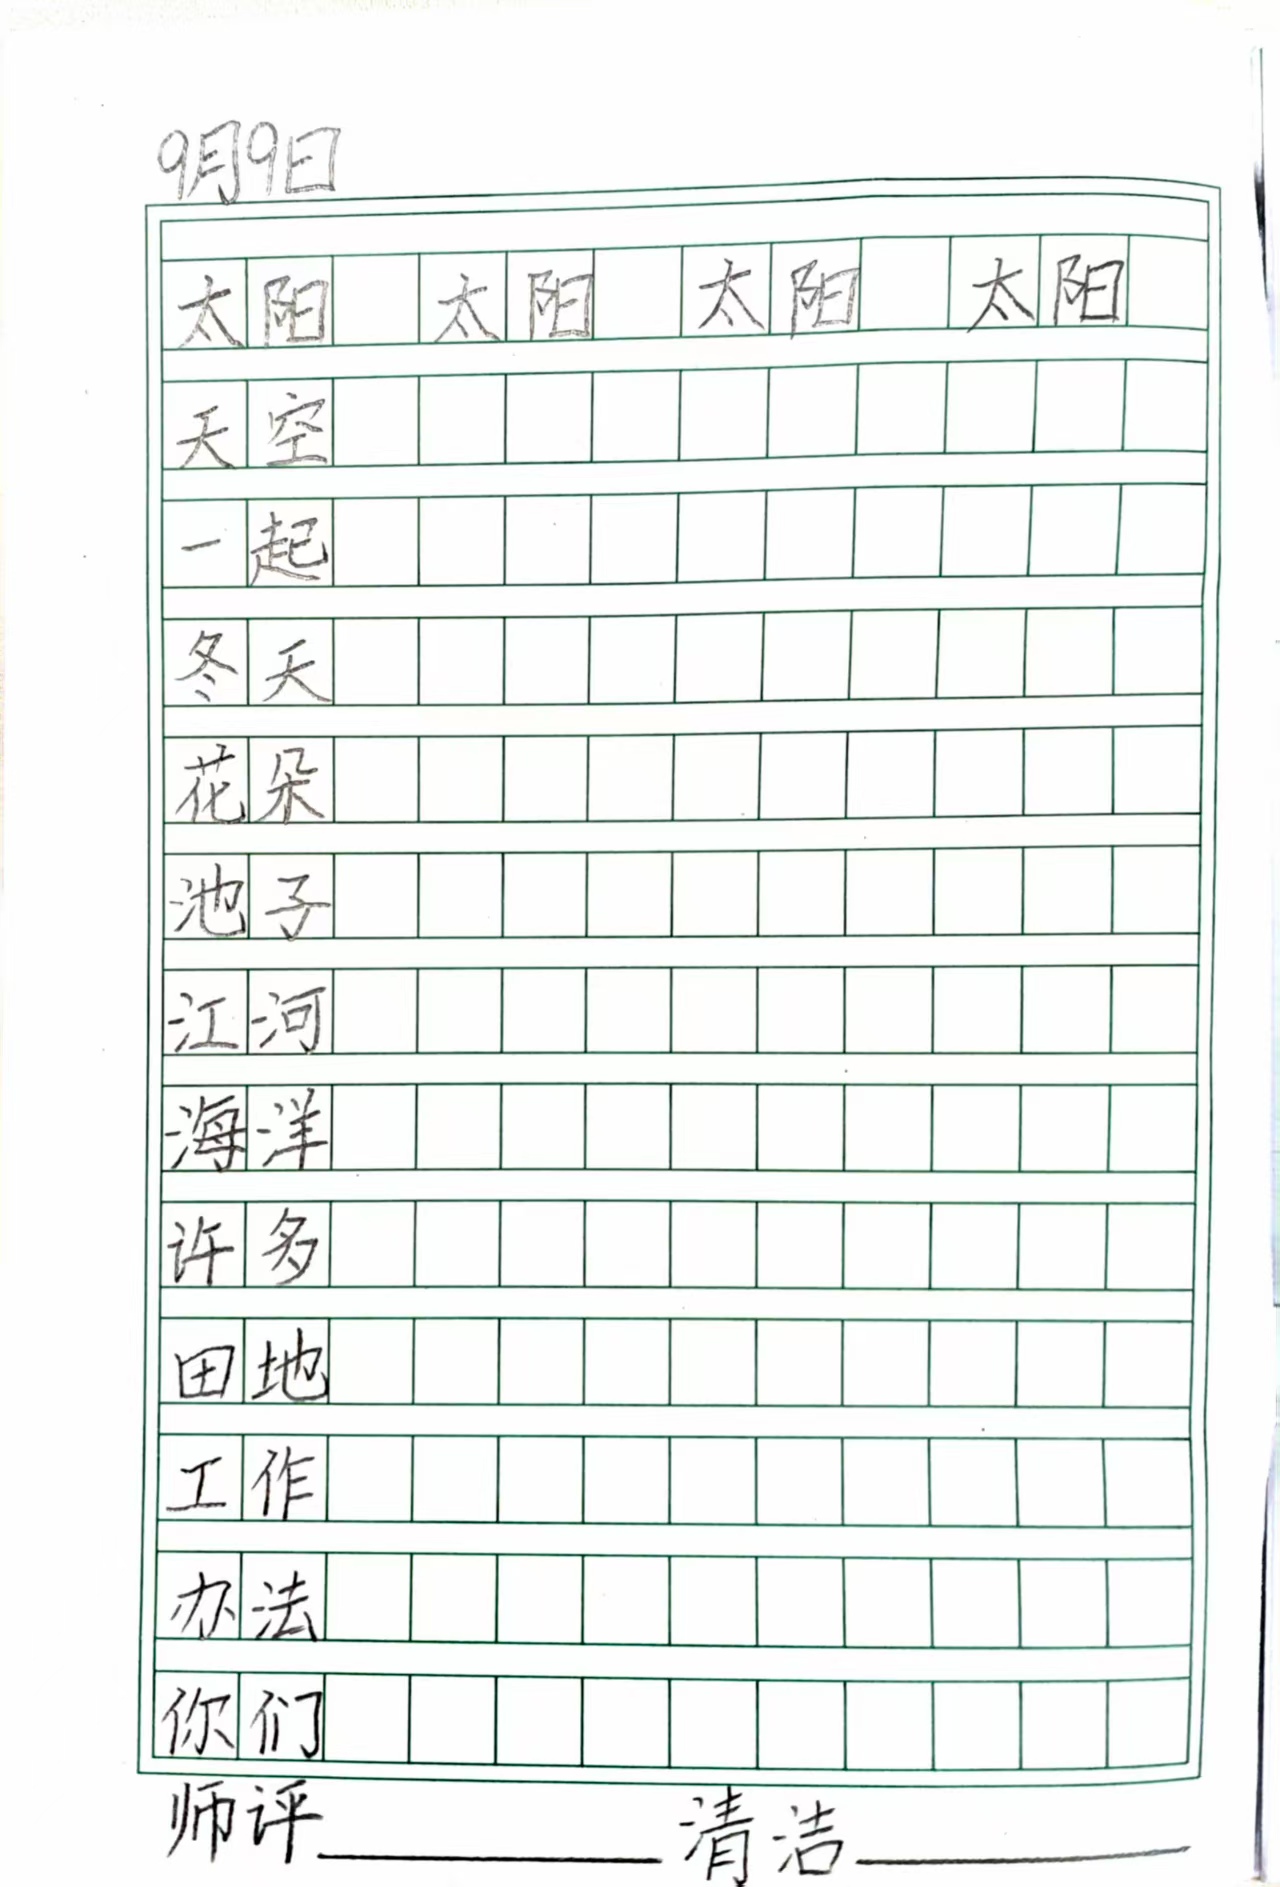 9月9日
太阳 太阳 太阳 太阳
天空
一起
冬天
花朵
池子
江河
海洋
许多
田地
工作
办法
你们
师评 清洁